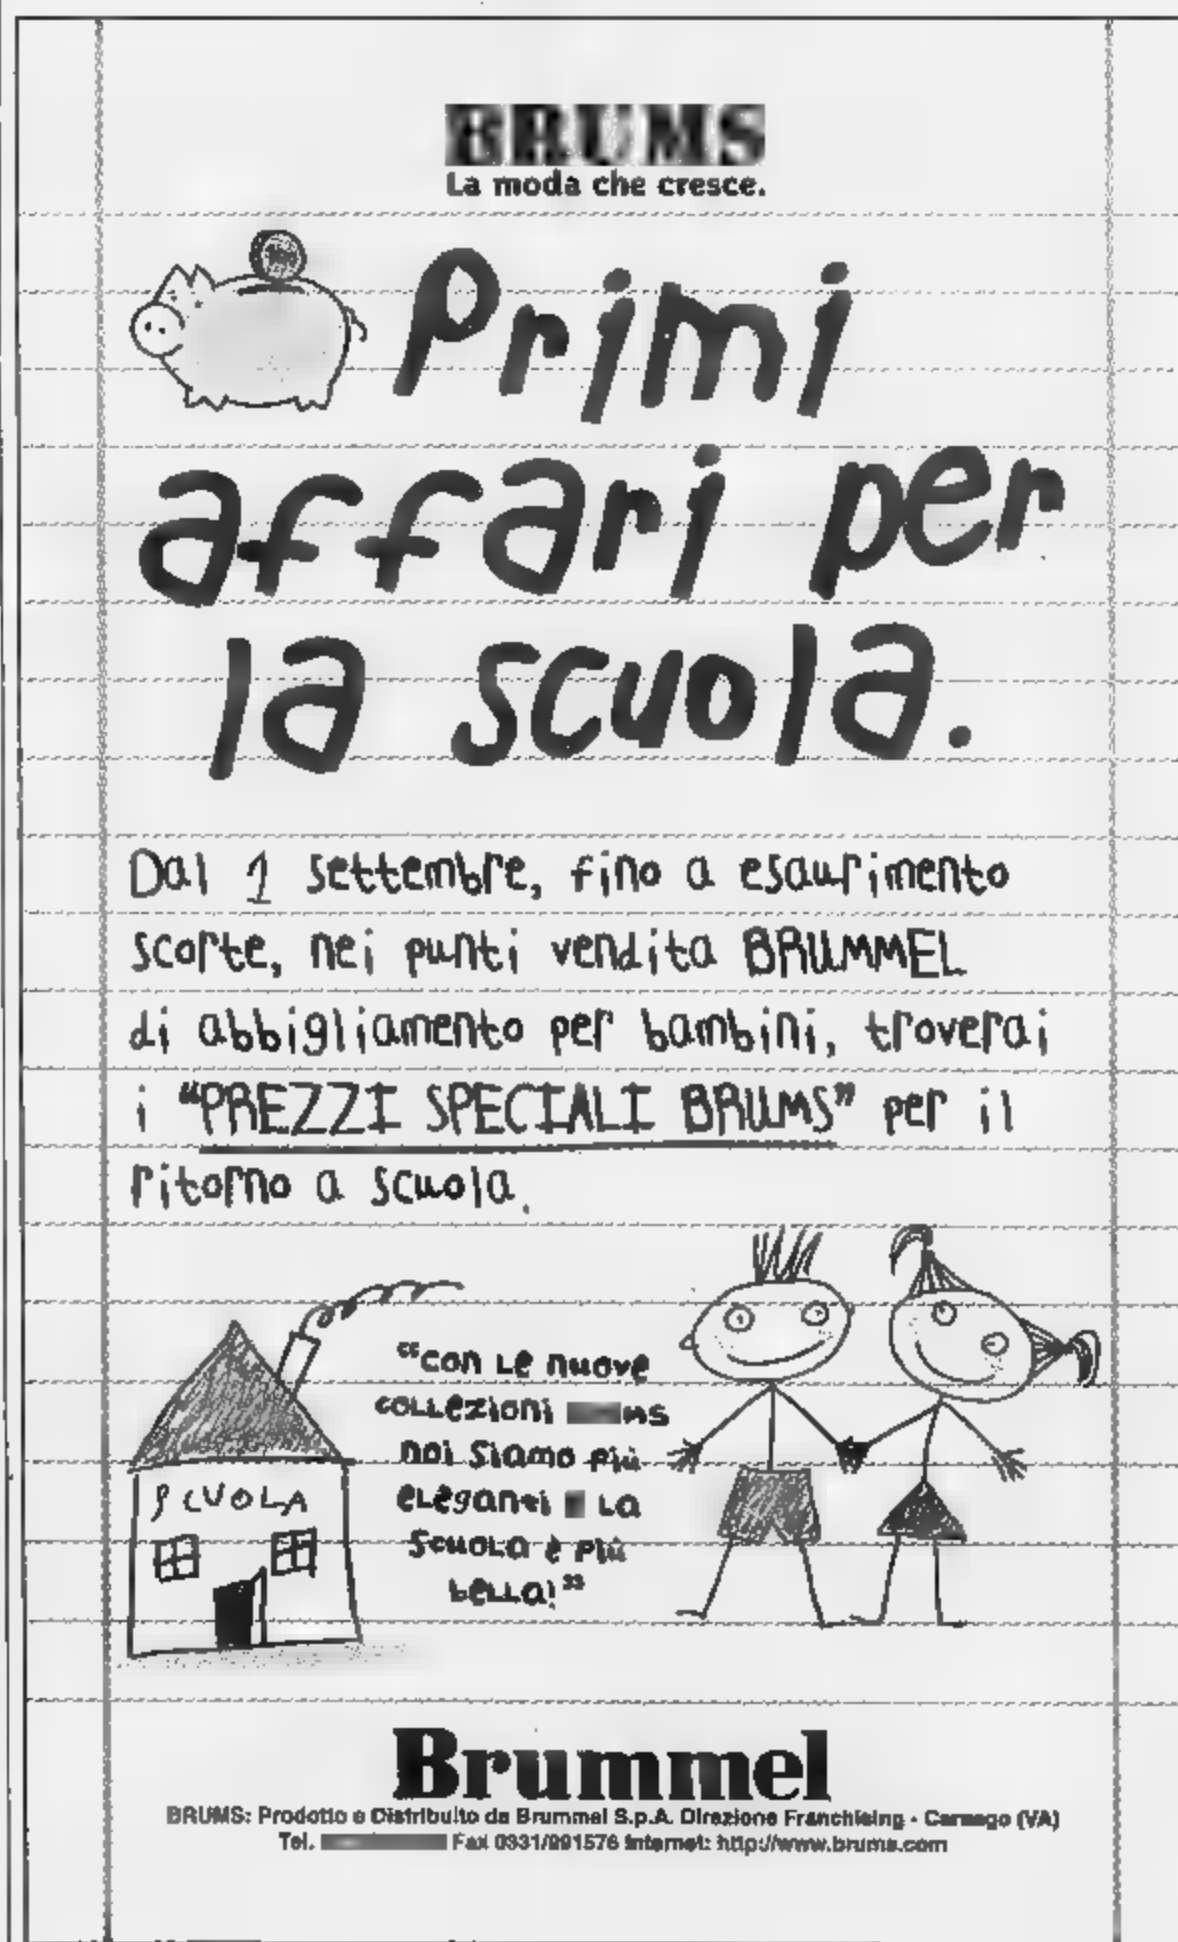 BRUMS
La moda che cresce.
Primi
affari per
la scuola.
Dal 1 settembre, fino a esaurimento
scorte, nei punti vendita BRUMMEL
di abbigliamento per bambini, troverai
i “PREZZI SPECIALI BRUMS” per il
ritorno a scuola.
SCUOLA
“con le nuove
collezioni
noi siamo più
eleganti la
scuola è più
bella!”
Brummel
BRUMS: Prodotto e Distribuito da Brummel S.p.A. Direzione Franchising - Carnago (VA)
Tel. Fax 0331/991576 Internet: http://www.brums.com